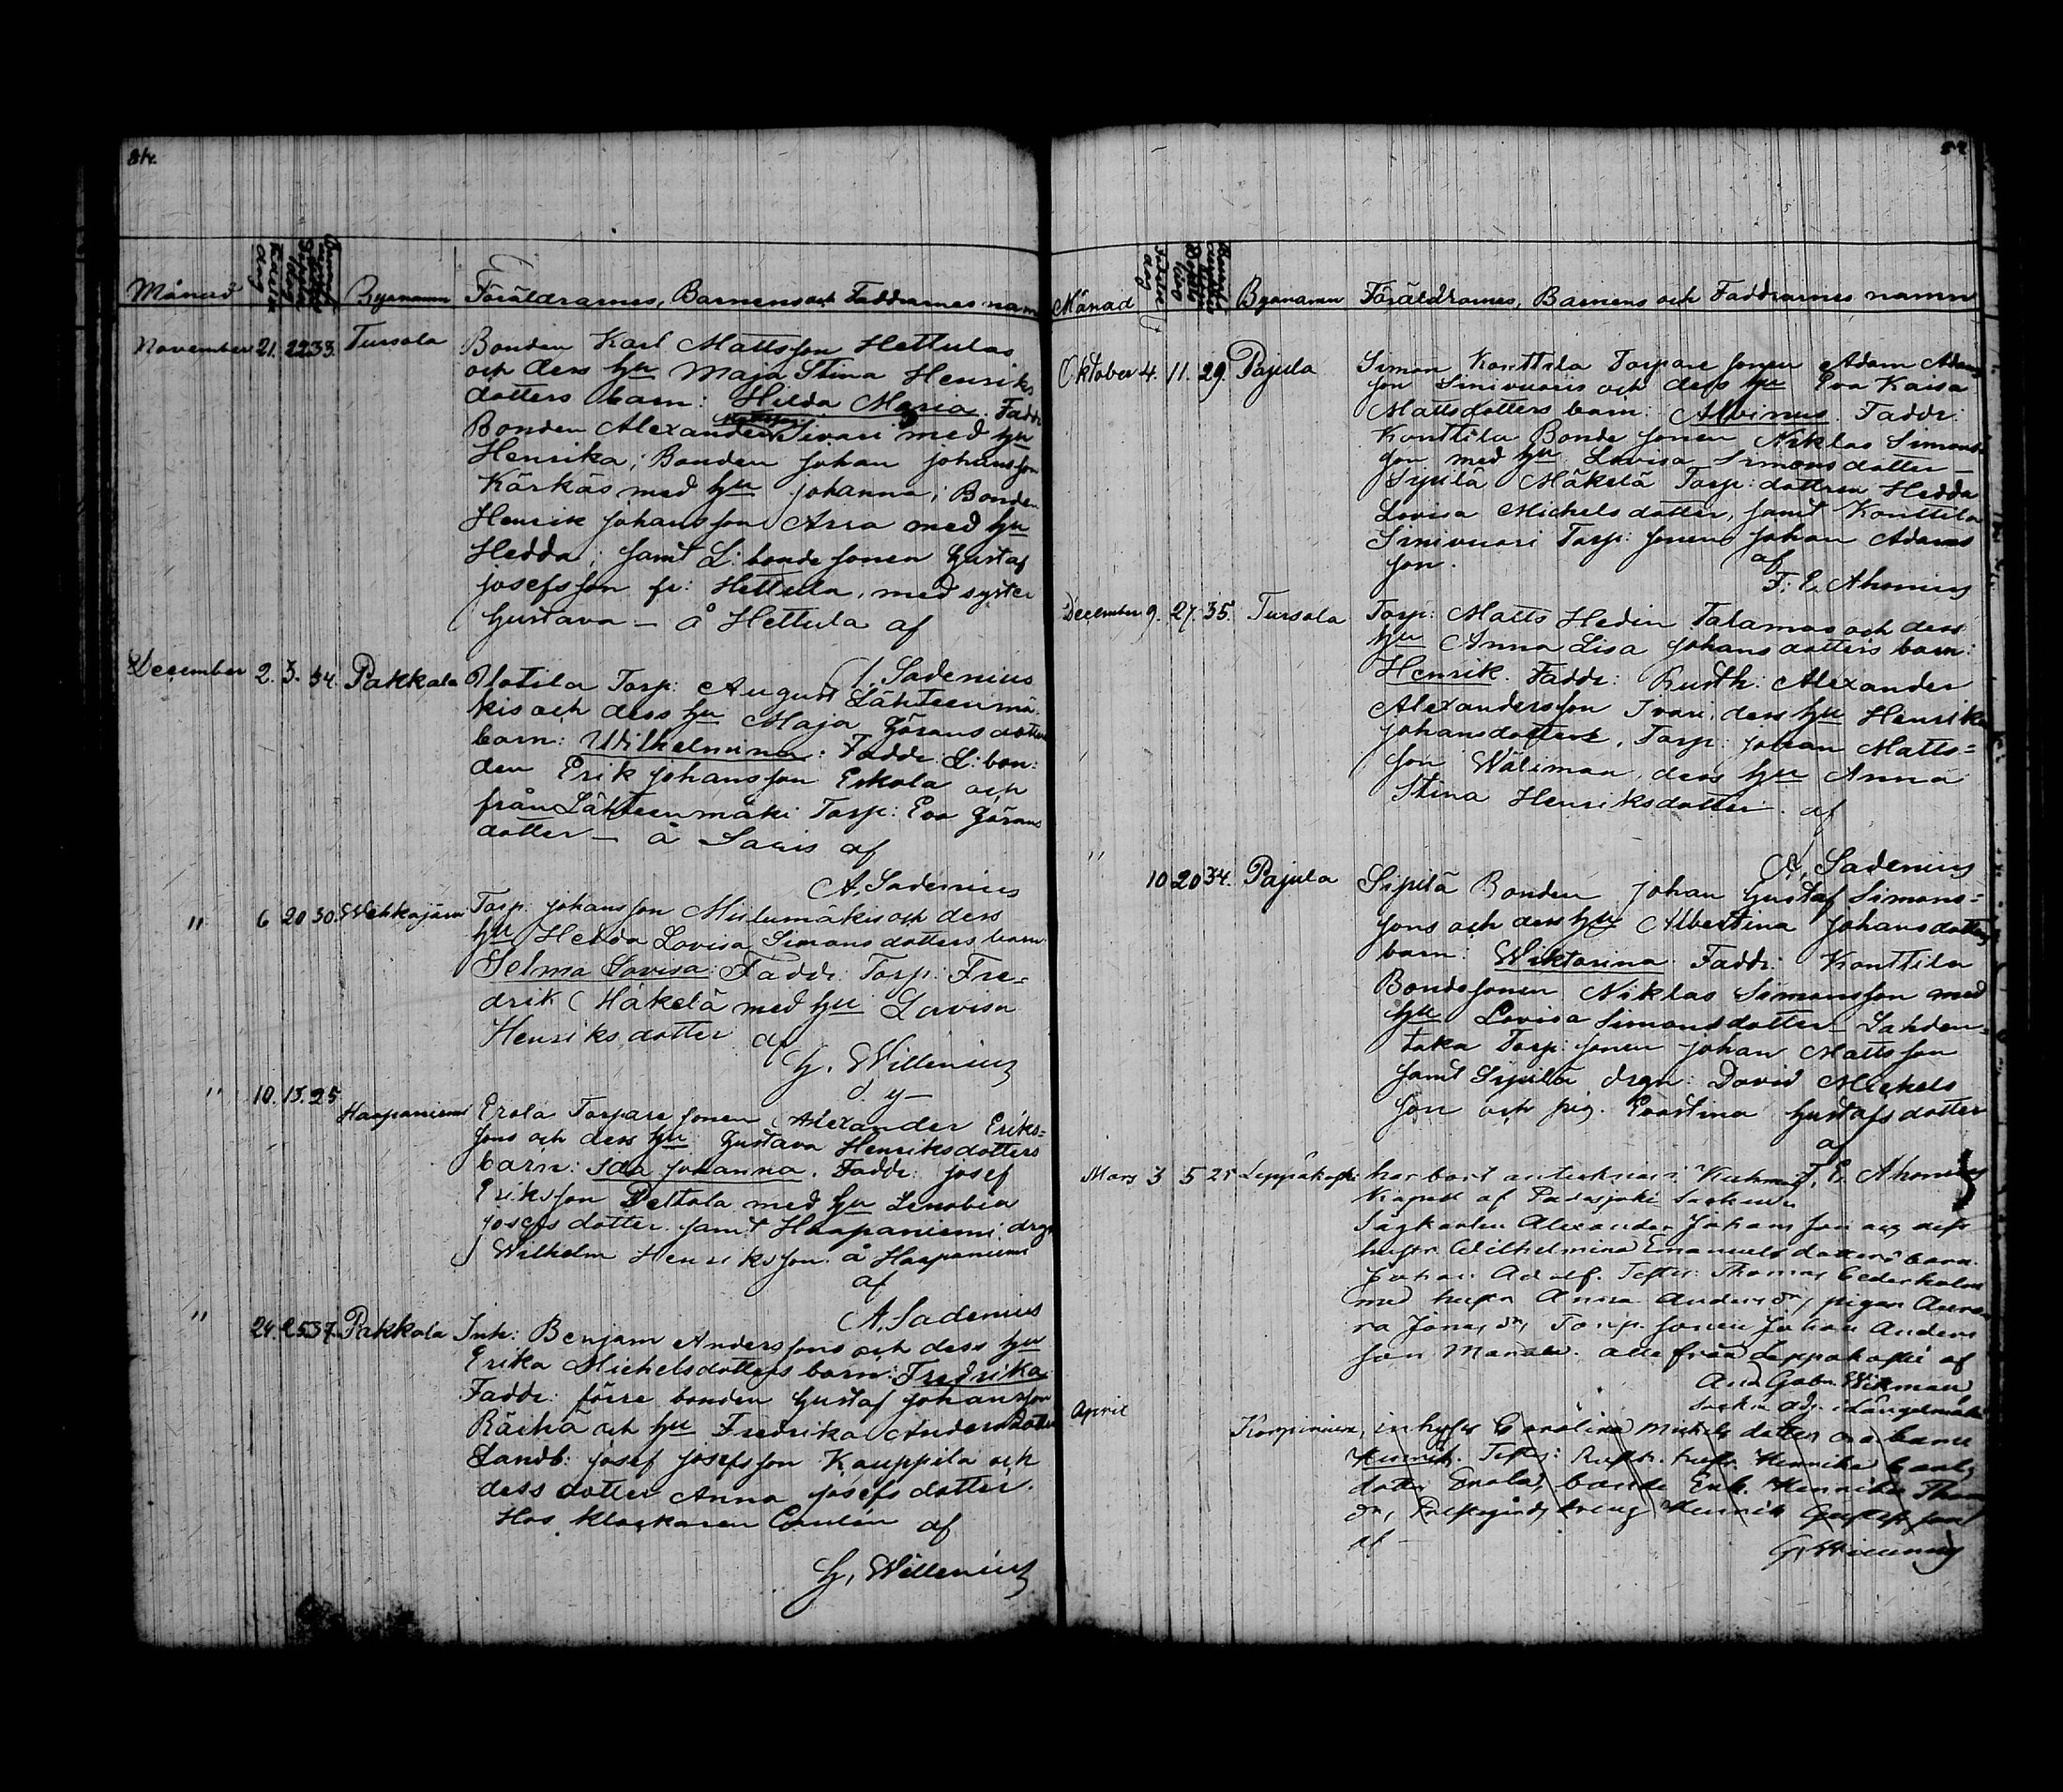 Månad Byanamn Föräldrarnes, Barnens och Faddrarnes namn
November 21. 22 33. Tursola Bonden Karl Mattsson Hettulas
och dess hu Maja Stina Henriks
dotters barn: Hilda Maria. Faddr
Bonden Alexander Iivari med hu
Henrika; Bonden Johan Johansson
Kärkäs med hu Johanna; Bonden
Henrik Johansson Arra med hu
Hedda; samt L: bonde sonen Gustaf
Josefsson fr: Hettula, med syster
Gustava — å Hettula af
A. Sadenius
December 2. 3. 34. Pakkala Ulotila Torp: August Lähteenmä
kis och dess hu Maja Görans dotters
barn: Wilhelmina: Faddr: L: bon:
den Erik Johansson Eskola och
från Lähteenmäki Torp: Eva Görans
dotter — å Saris af
A. Sadenius
" 6 20 30. Wehkajärvi Torp: Johansson Mislumäkis och dess
hu Hedda Lovisa Simons dotters barn
Selma Lovisa: Faddr: Torp: Fre-
drik Mäkelä med hu Lovisa
Henriks dotter af
G. Willenius
" 10. 15. 25 Haapaniemi Erola Torpare sonen Alexander Eriks=
sons och dess hu Gustava Henriksdotters
barn: Ida Johanna. Faddr: Josef
Eriksson Peltola med hu Lenobia
Josefs dotter samt Haapaniemi drgn
Wilhelm Henriksson. å Haapaniemi
af
A. Sadenius
" 24. 25 37. Pakkala Inh: Benjam Anderssons och dess hu
Erika Michelsdotters barn: Fredrika
Faddr: förre bonden Gustaf Johansson
Räihä och hu Fredrika Andersdotter
Landb: Josef Josefsson Kauppila och
dess dotter Anna Josefs dotter.
Hos klockaren af
G. Willenius
Månad Byanamn Föräldrarnes, Barnens och Faddrarnes namn
Oktober 4. 11. 29. Pajula Simon Konttila Torpare sonen Adam Adams
son Sinivuoris och dess hu Eva Kaisa
Mattsdotters barn: Albinus. Faddr:
Konttila Bonde sonen Niklas Simons
son med hu Lovisa Simonsdotter —
Sipilä Mäkelä Torp: dottren Hedda
Lovisa Michels dotter, samt Konttila
Sinivuori Torp: sonen Johan Adams
son. af
F. E. Ahonius
December 9. 27. 35. Tursola Torp: Matts Hedin Talamas och dess
hu Anna Lisa Johansdotters barn:
Henrik. Faddr: Rusth: Alexander
Alexandersson Ivari, dess hu Henrika
Johansdotter, Torp: Johan Matts=
son Wäliman, dess hu Anna
Stina Henriksdotter. af
A. Sadenius
" 10 20 34. Pajula Sipilä Bonden Johan Gustaf Simons=
sons och dess hu Albertina Johansdotters
barn: Wiktorina. Faddr: Konttila
Bondesonen Niklas Simonsson med
hu Lovisa Simonsdotter — Lahden=
taka Torp: sonen Johan Mattsson
samt Sipilä drgn: David Michels
son och pig. Evastina Gustafsdotter
af
F. E. Ahonius
Mars 3 5 25 Leppäkoski har bort antecknas i
af Padasjoki Socken
Alexander Johansson och dess
hustr Wilhelmina Emanuels dotters barn
Johan Adolf. Test: Thomas Cederholm
med hustr Anna Anders dr, pigan Auro-
ra Jonas dr, Torp. sonen Johan Anders
son Manale. alle från Leppäkoski af
And Gabr. Wikman
April Korpiniemi, inhyses Carolina Michels dotters oä barn
Henrik. Test: hustr. Henrika Carls
dotter bonde Enk. Henrika
dr, dreng Henrik
af G. Willenius